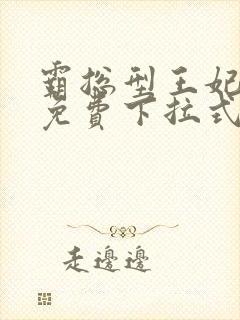 霸总型王妃
免費下拉式
走邊邊